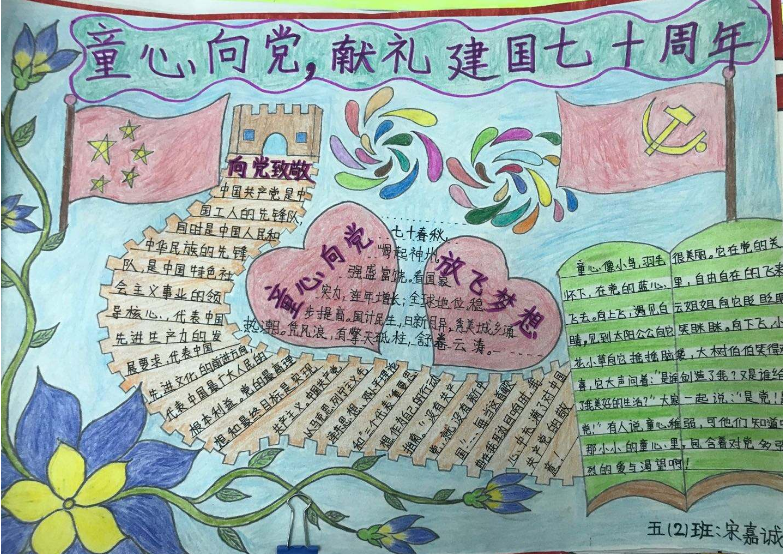 童心向党，献礼建国七十周年
向党致敬
中国共产党是中
国工人的先锋队，
同时是中国人民和
中华民族的先锋
队，是中国特色社
会主义事业的领
导核心，代表中国
先进生产力的发
展要求，代表中国
先进文化的前进方向，
代表中国最广大人民的
根本利益。党的最高理
想和最终目标是实现
共产主义。中国共产党
以马克思列宁主义
和“三个代表”重要思
想作为自己的行动
指南。“没有共产
党，就没有新中
国”
童心向党
放飞梦想
七十春秋，
崛起神州，
强盛富饶。看国家
实力，连年增长；全球地位，稳
步提高。国计民生，日新月异，美城乡
党风浪，
擎天砥柱，舒卷云涛。
童心像小鸟，羽毛很美丽。它在党的关
怀下，在党的蓝心里，自由自在的飞
飞去。向上飞，遇见白云姐姐向它眨眨
睛，见到太阳公公向它笑眯眯。向下飞，小
花小草向它摇摇脑袋，大树伯伯笑得
喜，它大声问着：“是谁创造了我？又是谁给
了我美好的生活？”大家一起说：“是党！是
党！”有人说童心稚弱，可他们知道
那小小的童心里，包含着对党多
烈的爱与渴望啊！
五(2)班：宋嘉诚